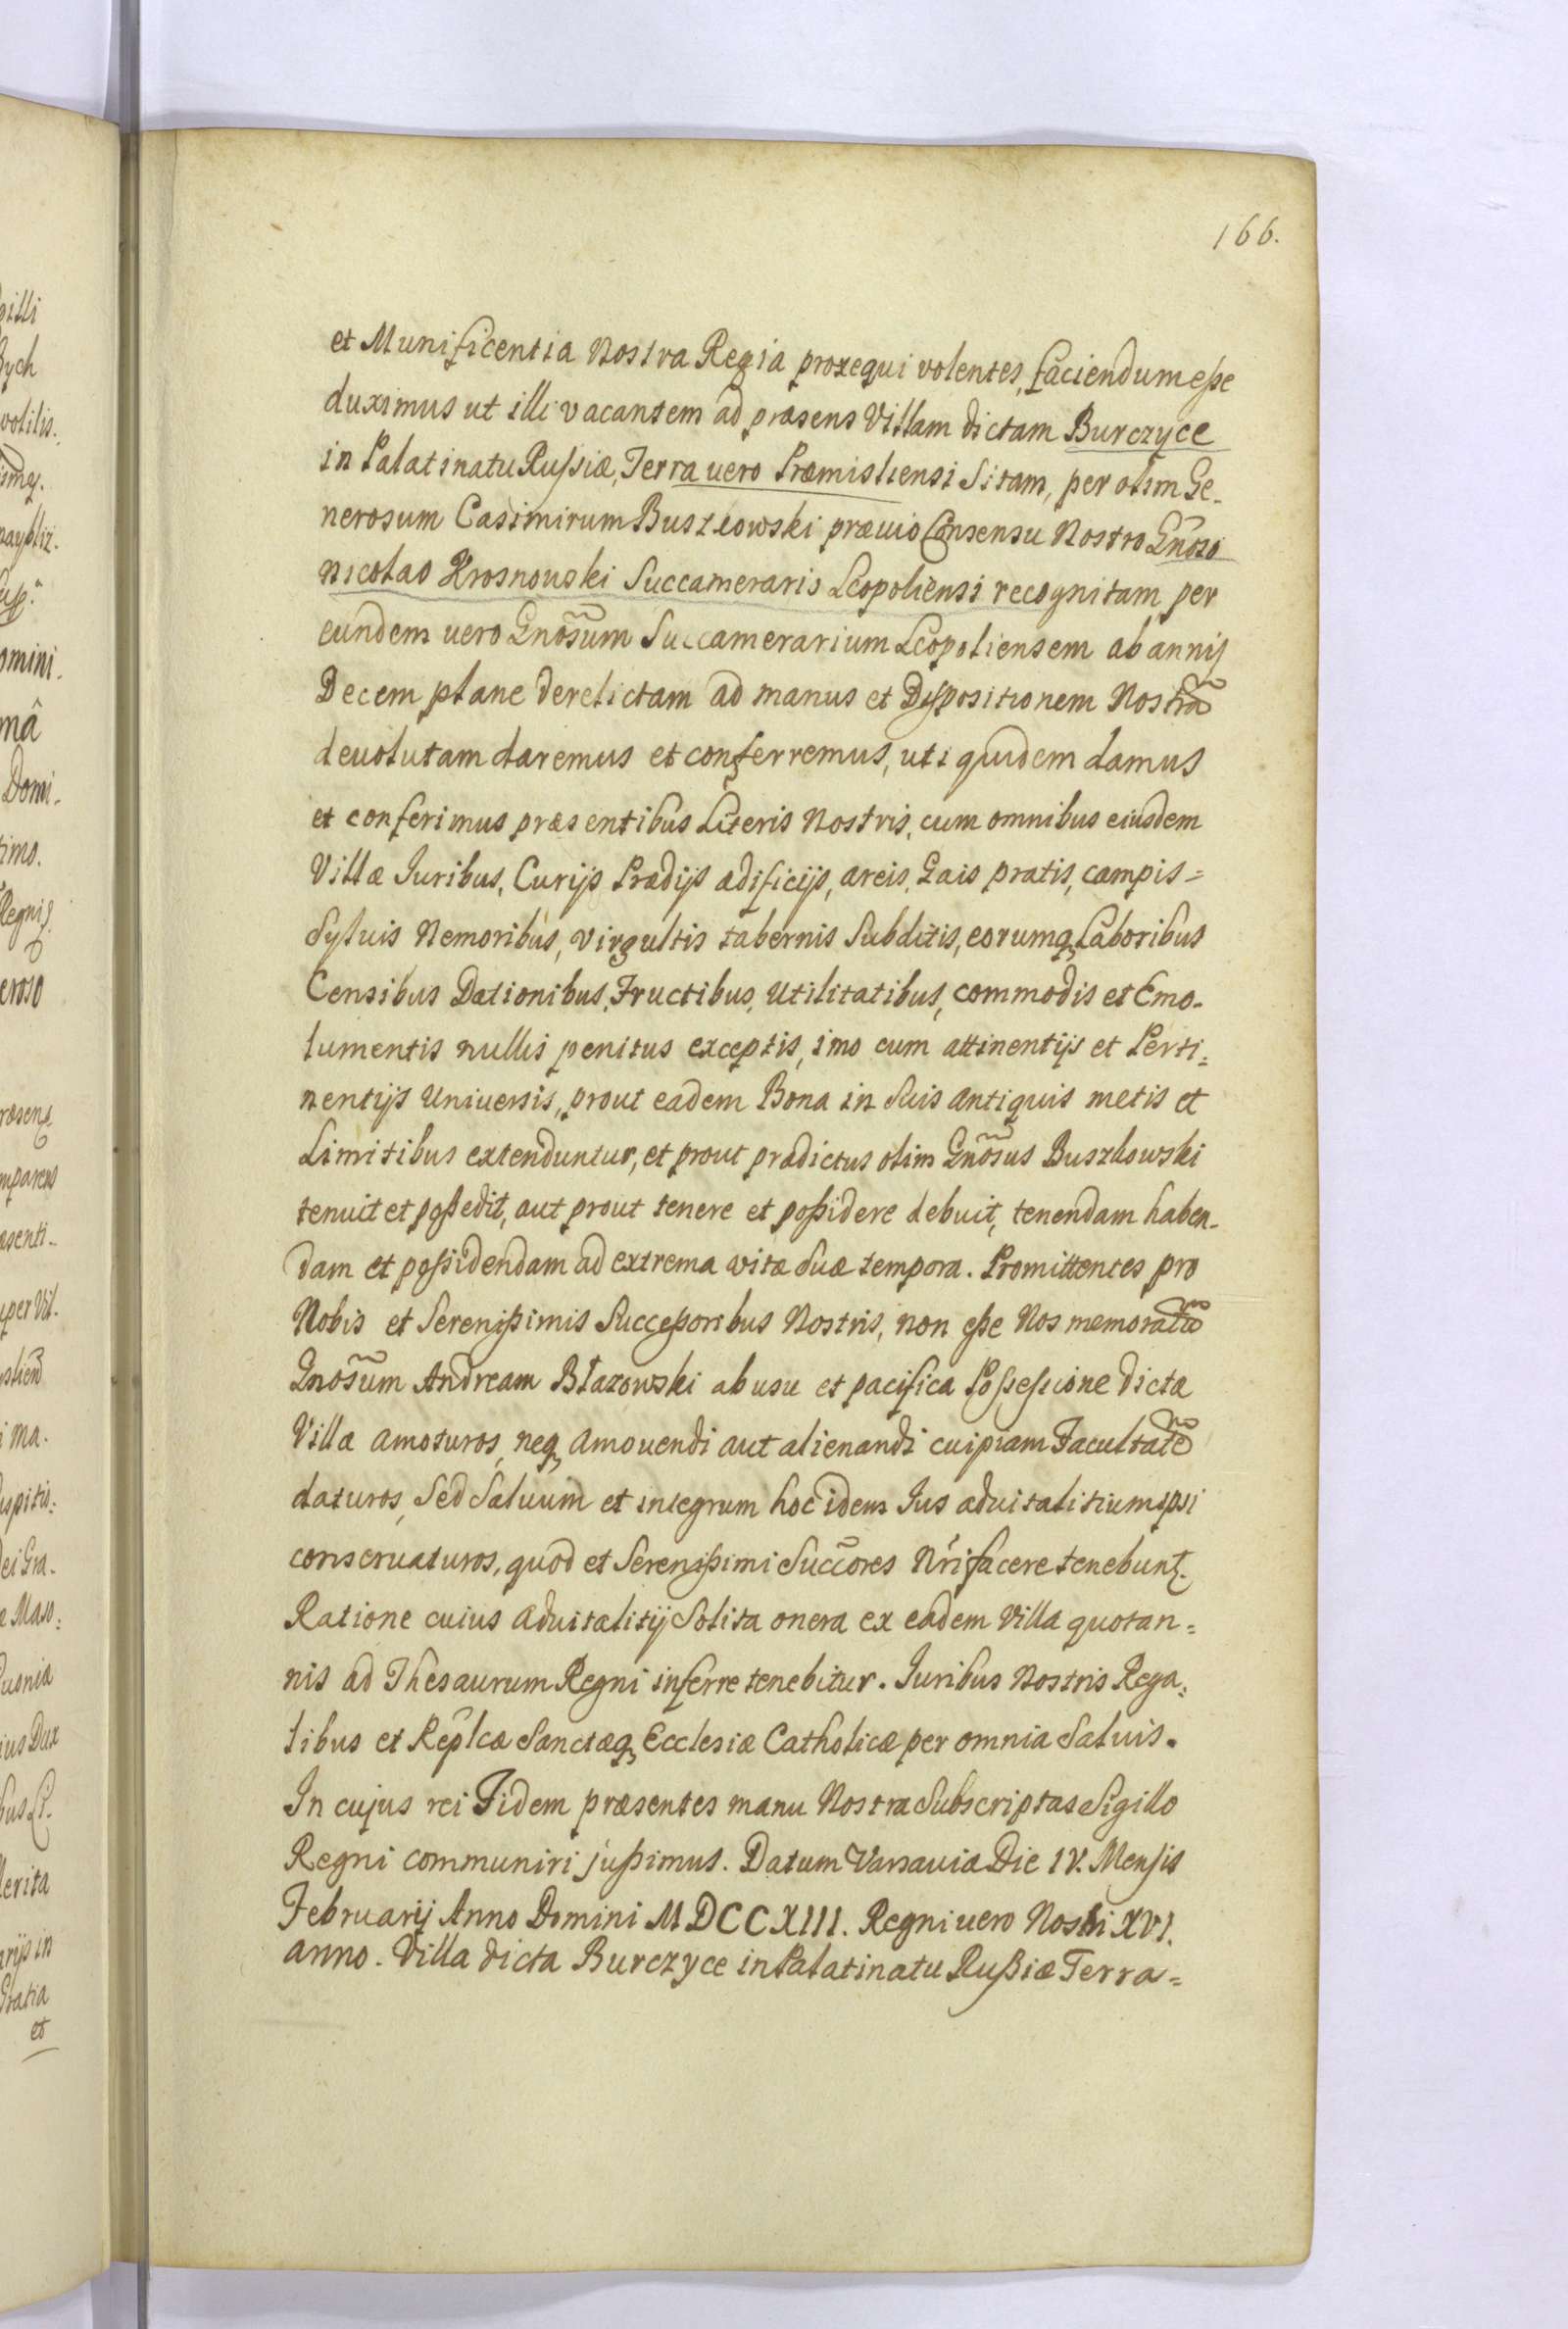 166.
et Munificentia Nostra Regia prosequi volentes, faciendum eße
duximus ut illi vacantem ad præsens Villam dictam Burczyce
in Palatinatu Rußiæ, Terra uero Præmisliensi Sitam, per olim Ge-
nerosum Casimirum Buszkowski præuio Consensu Nostro Gnõso
Nicolao Krosnowski Succamerario Leopoliensi recognitam per
eundem uero Gnõsum Succamerarium Leopoliensem ab annis
Decem plane derelictam ad manus et Dispositionem Nostrã
deuolutam daremus et conferremus, uti quidem damus
et conferimus præsentibus Literis Nostris, cum omnibus eiusdem
Villæ Juribus, Curijs Prædijs ædificijs, areis, Gais pratis, campis=
Syluis Nemoribus, virgultis tabernis Subditis, eorumq, Laboribus
Censibus Dationibus, Fructibus, Utilitatibus, commodis et Emo-
lumentis nullis penitus exceptis, imo cum attinentijs et Perti=
nentijs Uniuersis, prout eadem Bona in Suis antiquis metis et
Limitibus extenduntur, et prout prædictus olim Gnõsus Buszkowski
tenuit et poßedit, aut prout tenere et poßidere debuit, tenendam haben-
dam et poßidendam ad extrema vitæ Suæ tempora. Promittentes pro
Nobis et Serenißimis Succeßoribus Nostris, non eße Nos memoratũ
Gnõsum Andream Błazowski ab usu et pacifica Poßeßione dictæ
Villæ amoturos, neq, amouendi aut alienandi cuipiam Facultatẽ
daturos, Sed Saluum et integrum hoc idem Jus aduitalitium ipsi
conseruaturos, quod et Serenißimi Succõres Nr̃i facere tenebunt.
Ratione cuius aduitalitij Solita onera ex eadem Villa quotan=
nis ad Thesaurum Regni inferre tenebitur. Juribus Nostris Rega=
libus et Replcæ Sanctæq, Ecclesiæ Catholicæ per omnia Saluis.
In cujus rei Fidem præsentes manu Nostra Subscriptas Sigillo
Regni communiri jußimus. Datum Varsauiæ Die IV. Mensis
Februarij Anno Domini MDCCXIII. Regni uero Nostri XVI.
anno. Villa dicta Burczyce in Palatinatu Rußiæ Terra=